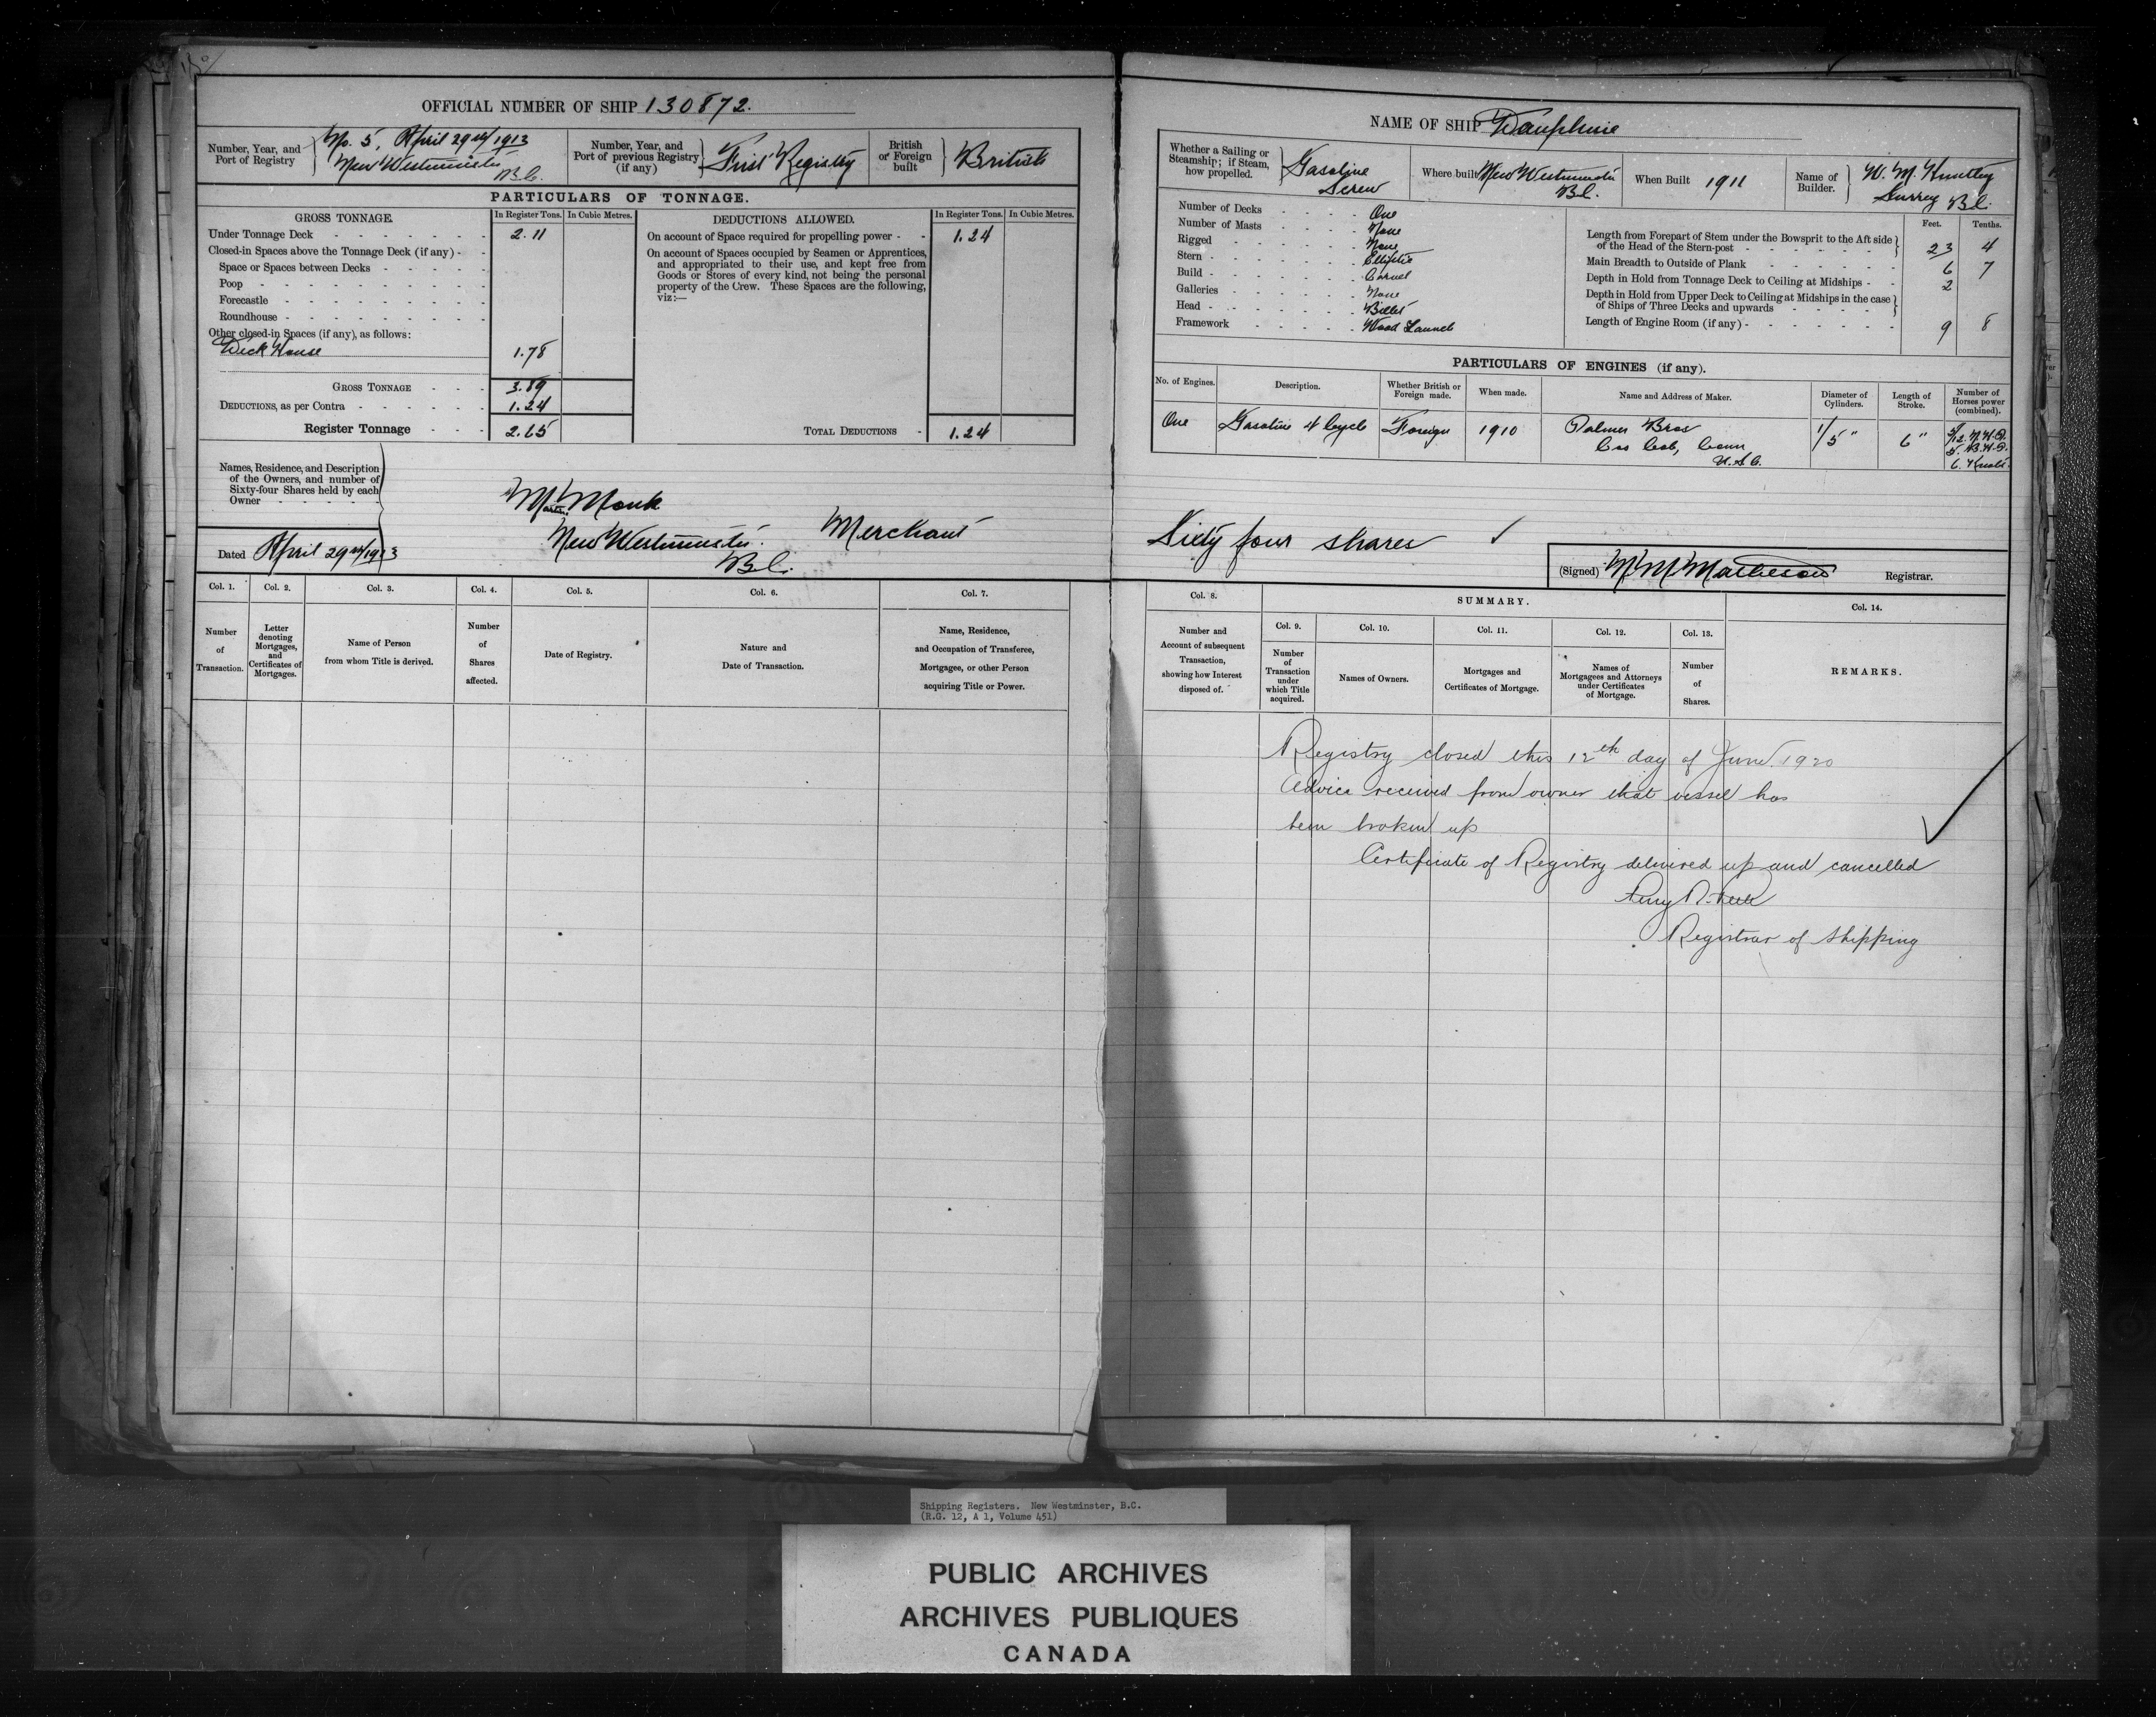 OFFICIAL NUMBER OF SHIP 130872.
Number, Year, and Port of Registry
No. 5, April 29th/1913
New Westminster B.C.
Number, Year, and Port of previous Registry (if any)
First Registry
British or Foreign built
British
PARTICULARS OF TONNAGE.
GROSS TONNAGE.
In Register Tons. In Cubic Metres.
DEDUCTIONS ALLOWED.
In Register Tons. In Cubic Metres.
Under Tonnage Deck 2.11
Closed-in Spaces above the Tonnage Deck (if any)
Space or Spaces between Decks
Poop
Forecastle
Roundhouse
Other closed-in Spaces (if any), as follows:
Deck House 1.78
GROSS TONNAGE 3.89
DEDUCTIONS, as per Contra 1.24
Register Tonnage 2.65
On account of Space required for propelling power 1.24
On account of Spaces occupied by Seamen or Apprentices,
and appropriated to their use, and kept free from
Goods or Stores of every kind, not being the personal
property of the Crew. These Spaces are the following,
viz:—
TOTAL DEDUCTIONS 1.24
Names, Residence, and Description
of the Owners, and number of
Sixty-four Shares held by each
Owner
Dated April 29th/1913
Martin Monk
New Westminster. Merchant
B.C.
Col. 1. Col. 2. Col. 3. Col. 4. Col. 5. Col. 6. Col. 7.
Number of Transaction.
Letter denoting Mortgages, and Certificates of Mortgages.
Name of Person from whom Title is derived.
Number of Shares affected.
Date of Registry.
Nature and Date of Transaction.
Name, Residence, and Occupation of Transferee, Mortgagee, or other Person acquiring Title or Power.
NAME OF SHIP Dauphine
Whether a Sailing or Steamship; if Steam, how propelled.
Gasoline Screw
Where built New Westminster B.C.
When Built 1911
Name of Builder.
W. M.
Surrey B.C.
Number of Decks One
Number of Masts None
Rigged None
Stern Elliptic
Build Carvel
Galleries None
Head Billet
Framework Wood Launch
Feet. Tenths.
Length from Forepart of Stem under the Bowsprit to the Aft side of the Head of the Stern-post 23 4
Main Breadth to Outside of Plank 6 7
Depth in Hold from Tonnage Deck to Ceiling at Midships 2
Depth in Hold from Upper Deck to Ceiling at Midships in the case of Ships of Three Decks and upwards
Length of Engine Room (if any) 9 8
PARTICULARS OF ENGINES (if any).
No. of Engines. Description. Whether British or Foreign made. When made. Name and Address of Maker. Diameter of Cylinders. Length of Stroke. Number of Horses power (combined).
One Gasoline 4 Cycle Foreign 1910 Palmer Bros 1/5" 6" 5/12 N.H.P.
Cos Cob, Conn 5. B.H.P.
U.S.A. 6. Knots.
Sixty four shares
(Signed) Matheson Registrar.
Col. 8.
Number and Account of subsequent Transaction, showing how Interest disposed of.
SUMMARY.
Col. 9. Col. 10. Col. 11. Col. 12. Col. 13.
Number of Transaction under which Title acquired.
Names of Owners.
Mortgages and Certificates of Mortgage.
Names of Mortgagees and Attorneys under Certificates of Mortgage.
Number of Shares.
Col. 14.
REMARKS.
Registry closed this 12th day of June 1920
Advice received from owner that vessel has
been broken up
Certificate of Registry delivered up and cancelled
Registrar of Shipping
Shipping Registers. New Westminster, B.C.
(R.G. 12, A 1, Volume 451)
PUBLIC ARCHIVES
ARCHIVES PUBLIQUES
CANADA